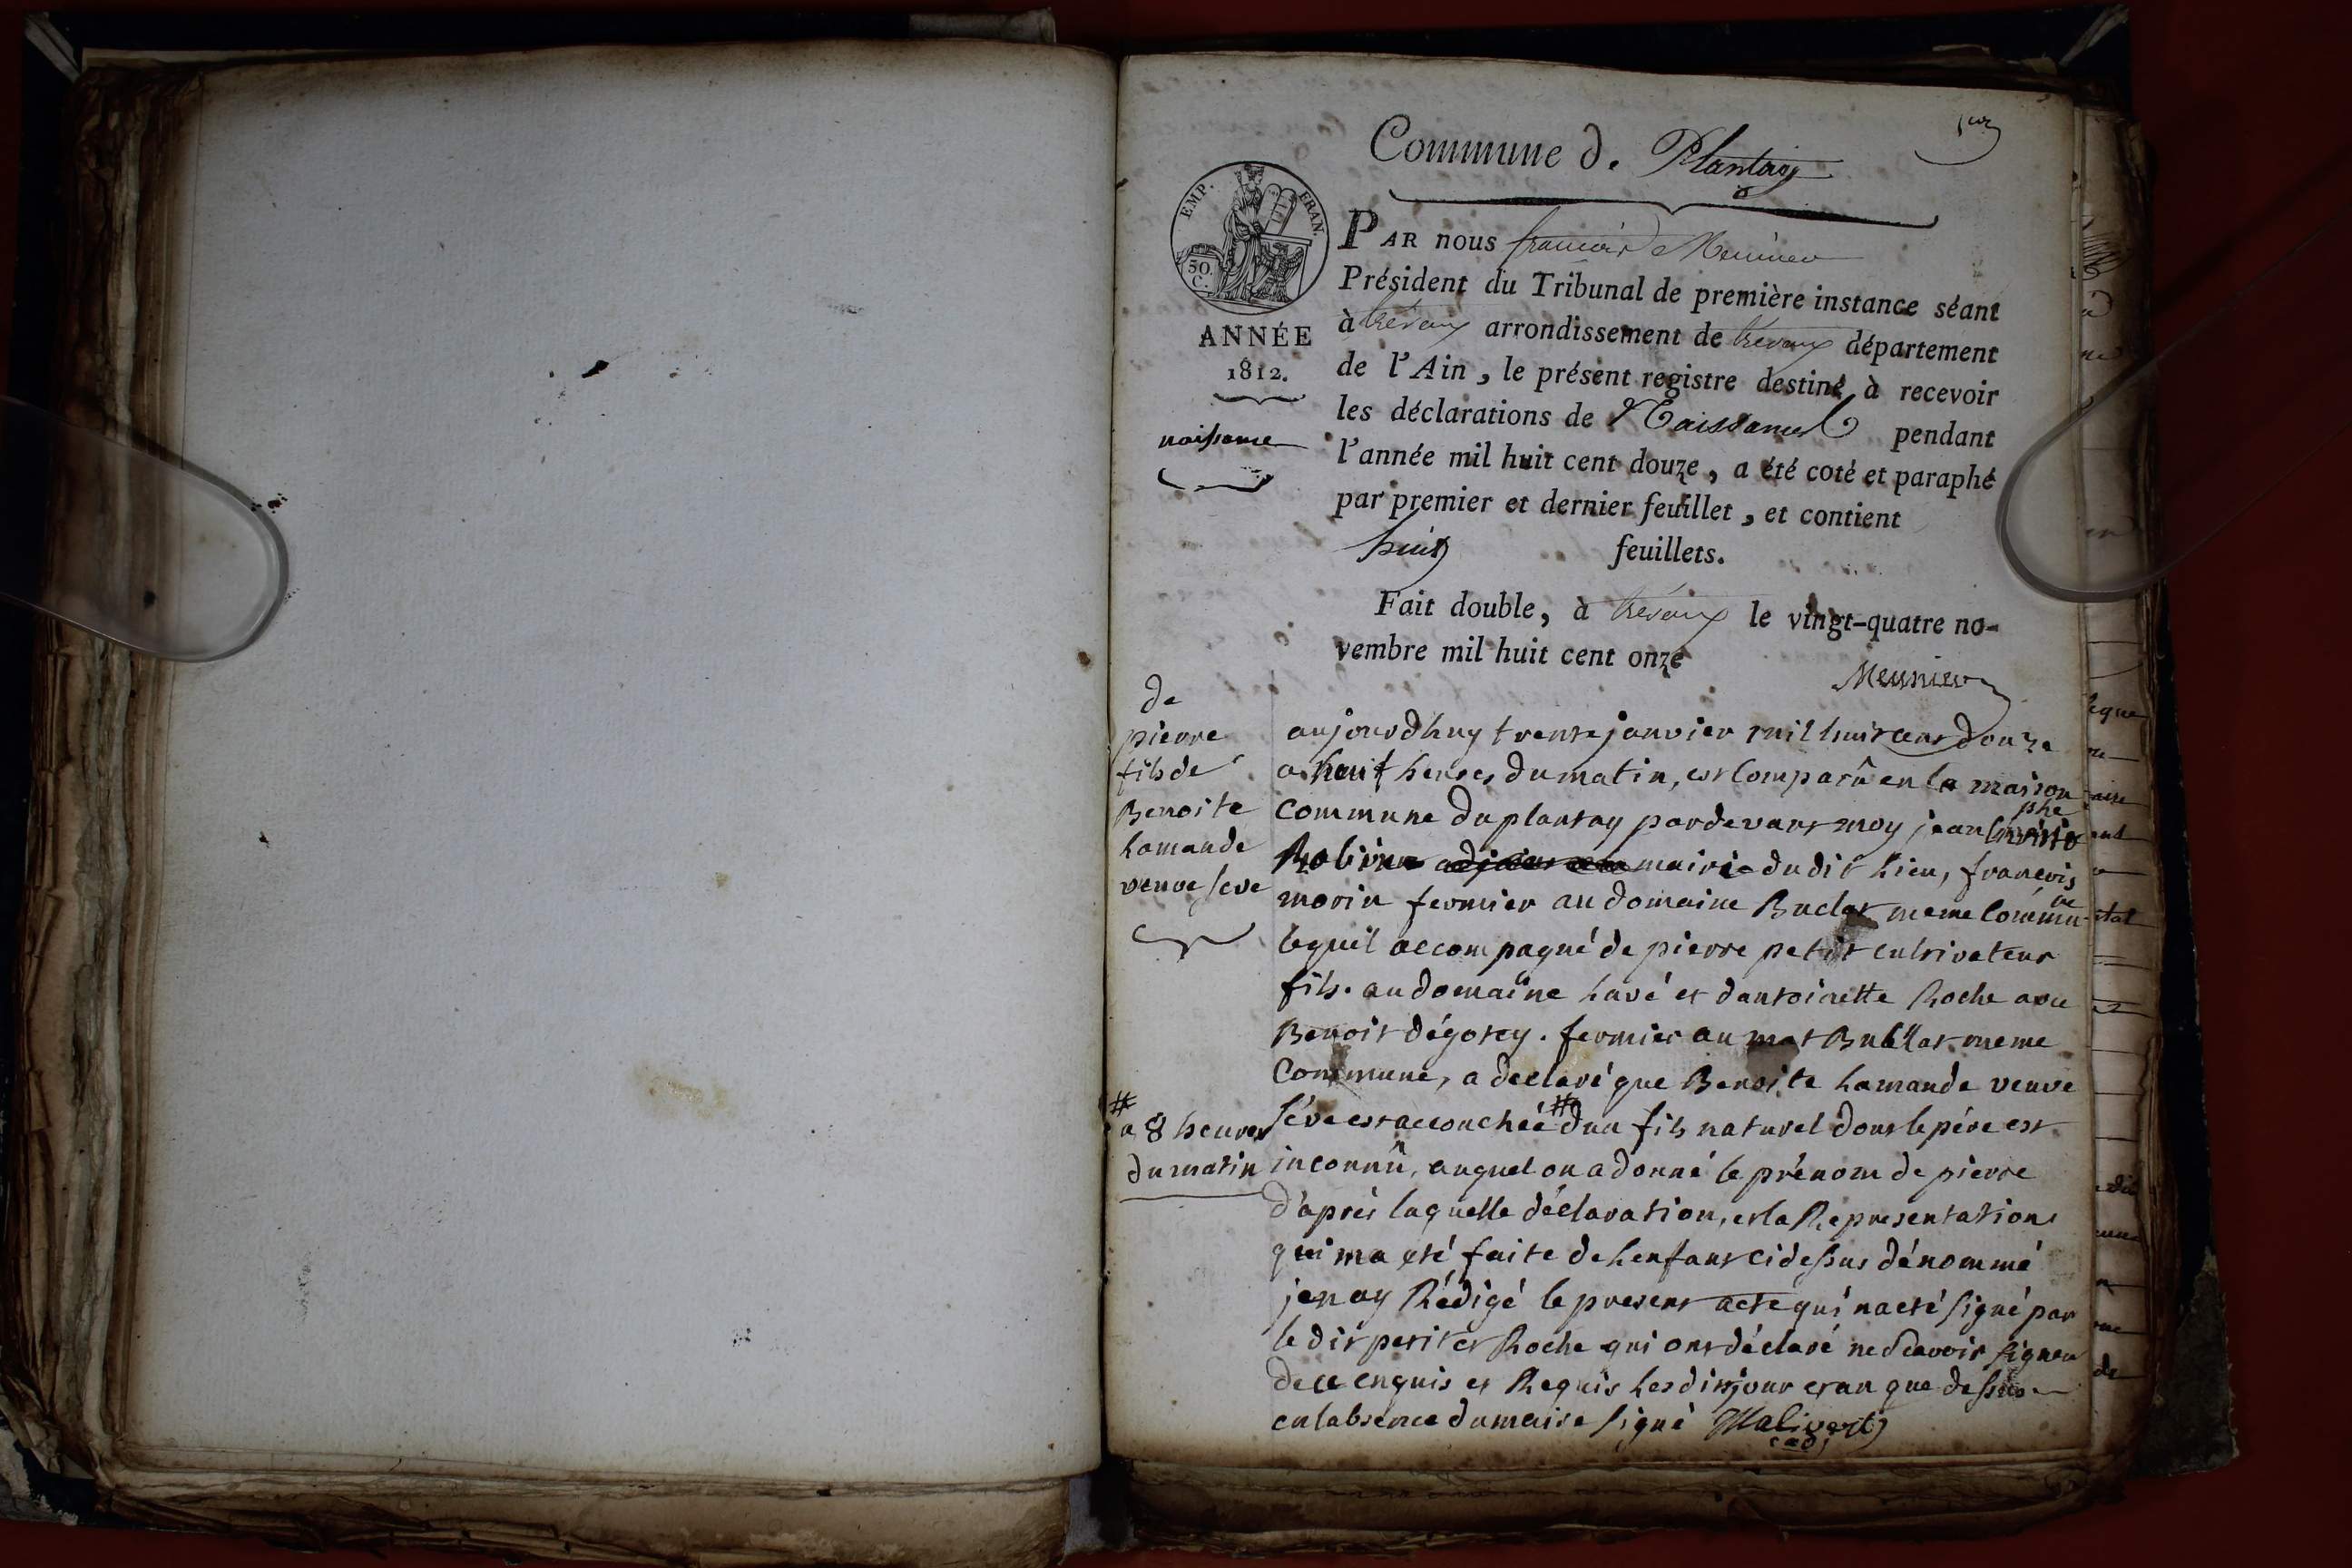 1er
Commune d. Plantay
EMP. FRAN.
50.
C.
ANNÉE
1812.
naissance
PAR nous françois Meunier
Président du Tribunal de première instance séant
à trévoux arrondissement de trévoux département
de l'Ain, le présent registre destiné à recevoir
les déclarations de Naissances pendant
l'année mil huit cent douze, a été coté et paraphé
par premier et dernier feuillet, et contient
huit feuillets.
Fait double, à trévoux le vingt-quatre no-
vembre mil huit cent onze
Meunier
de
pierre
fils de
Benoite
Lamande
veuve seve
aujourdhuy trente janvier mil huit cent douze
a heuit heures du matin, est Comparû en la maison
Commune du plantay pardevant moy jean
mairie du dit Lieu, françois
morin fermier au domaine Buclat meme Commune
lequel accompagné de pierre petit cultivateur
fils. au domaine Lavé et dantoinette Roche avec
Benoit dégotey. fermier au mas meme
Commune, a declaré que Benoite Lamande veuve
séve est accouchée # dun fils naturel dont le pére est
# a 8 heures
du matin
inconnû, auquel on a donné le prénom de pierre
d'aprés laquelle déclaration, et la Representation
qui ma eté faite de Lenfant ci dessus dénommé
jen ay Rédigé le present acte qui na eté signé par
le dit petit et Roche qui ont déclaré ne scavoir signer
de ce enquis et Requis Les dits jour et an que dessus
en labsence du maire signé Malivert
adj